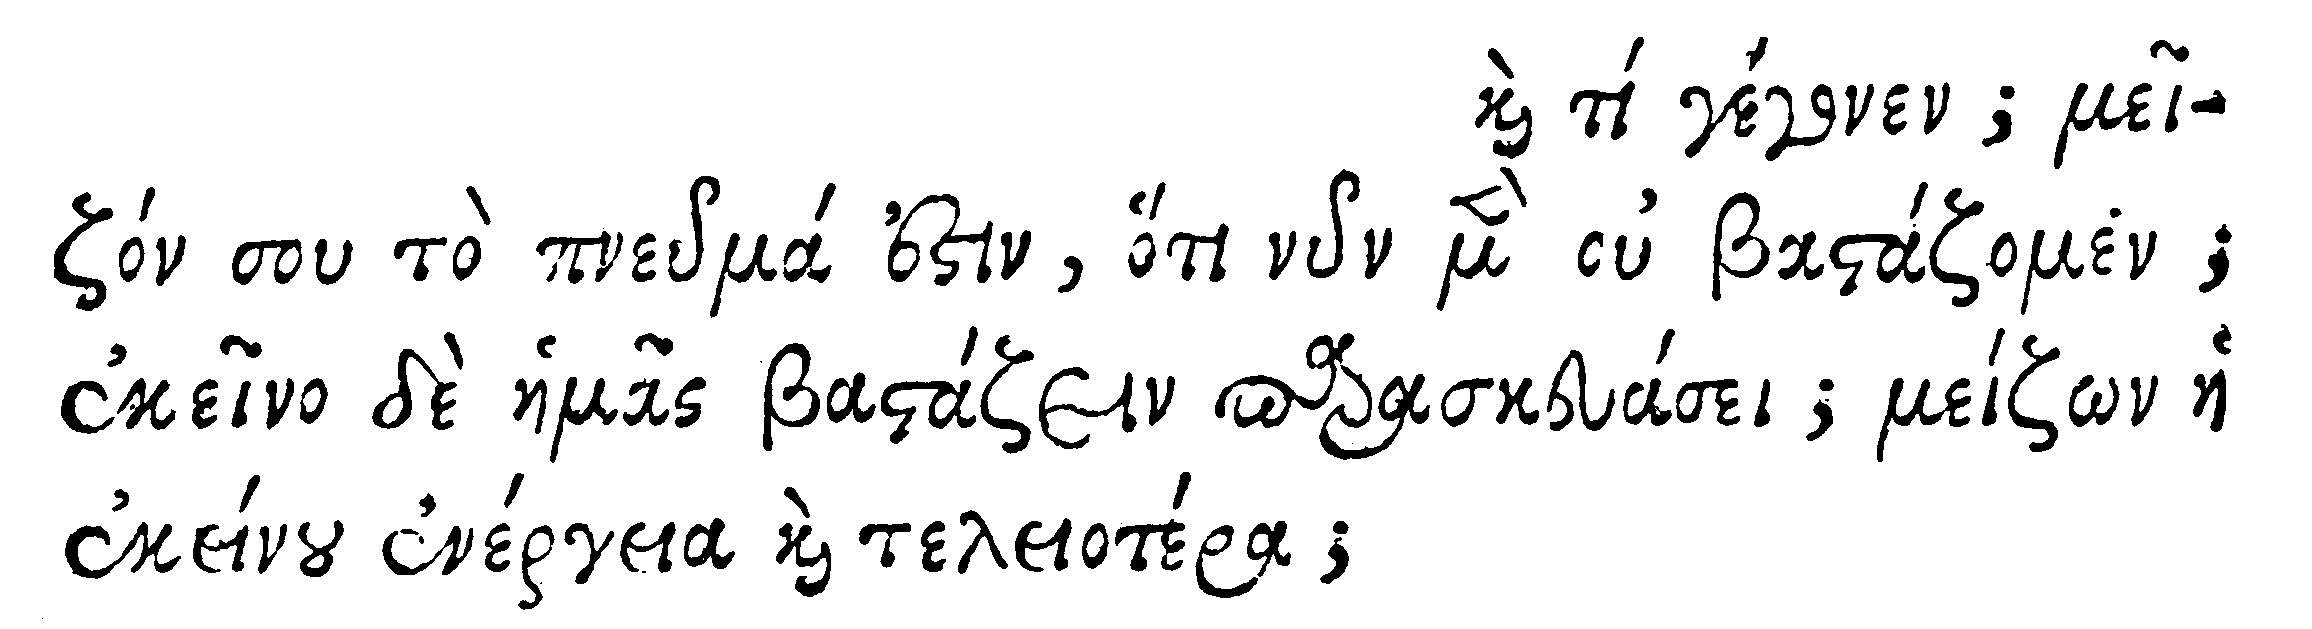 καὶ τί γέγονεν ; μεῖ-
ζόν σου τὸ πνεῦμά ἐστιν, ὅτι νῦν μὲν οὐ βαστάζομεν ;
ἐκεῖνο δὲ ἡμᾶς βαστάζειν παρασκευάσει ; μείζων ἡ
ἐκείνου ἐνέργεια καὶ τελειοτέρα ;